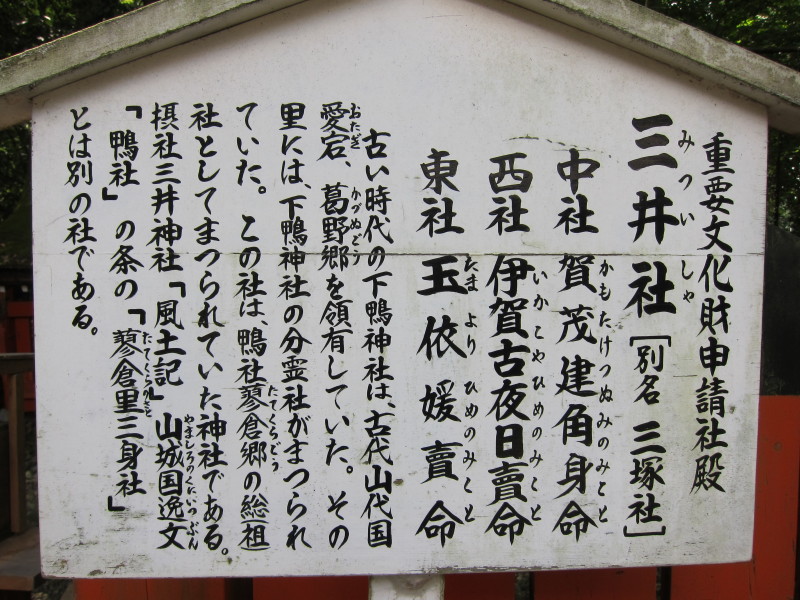 重要文化財申請社殿
三井社［別名 三塚社］
みつい しゃ
中社 賀茂建角身命
かもたけつぬみのみこと
西社 伊賀古夜日賣命
いかこやひめのみこと
東社 玉依媛賣命
たまよりひめのみこと
古い時代の下鴨神社は、古代山代国
愛宕、葛野郷を領有していた。その
おたぎ かづぬごう
里には、下鴨神社の分霊社がまつられ
ていた。この社は、鴨社蓼倉郷の総祖
たてくらごう
社としてまつられていた神社である。
摂社三井神社「風土記」山城国逸文
やましろのくにいつぶん
「鴨社」の条の「蓼倉里三身社」
たてくらのさと
とは別の社である。